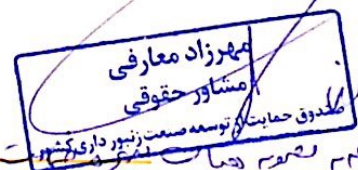 مهرزاد معارفی
مشاور حقوقی
صندوق حمایت از توسعه صنعت زنبور داری کشور